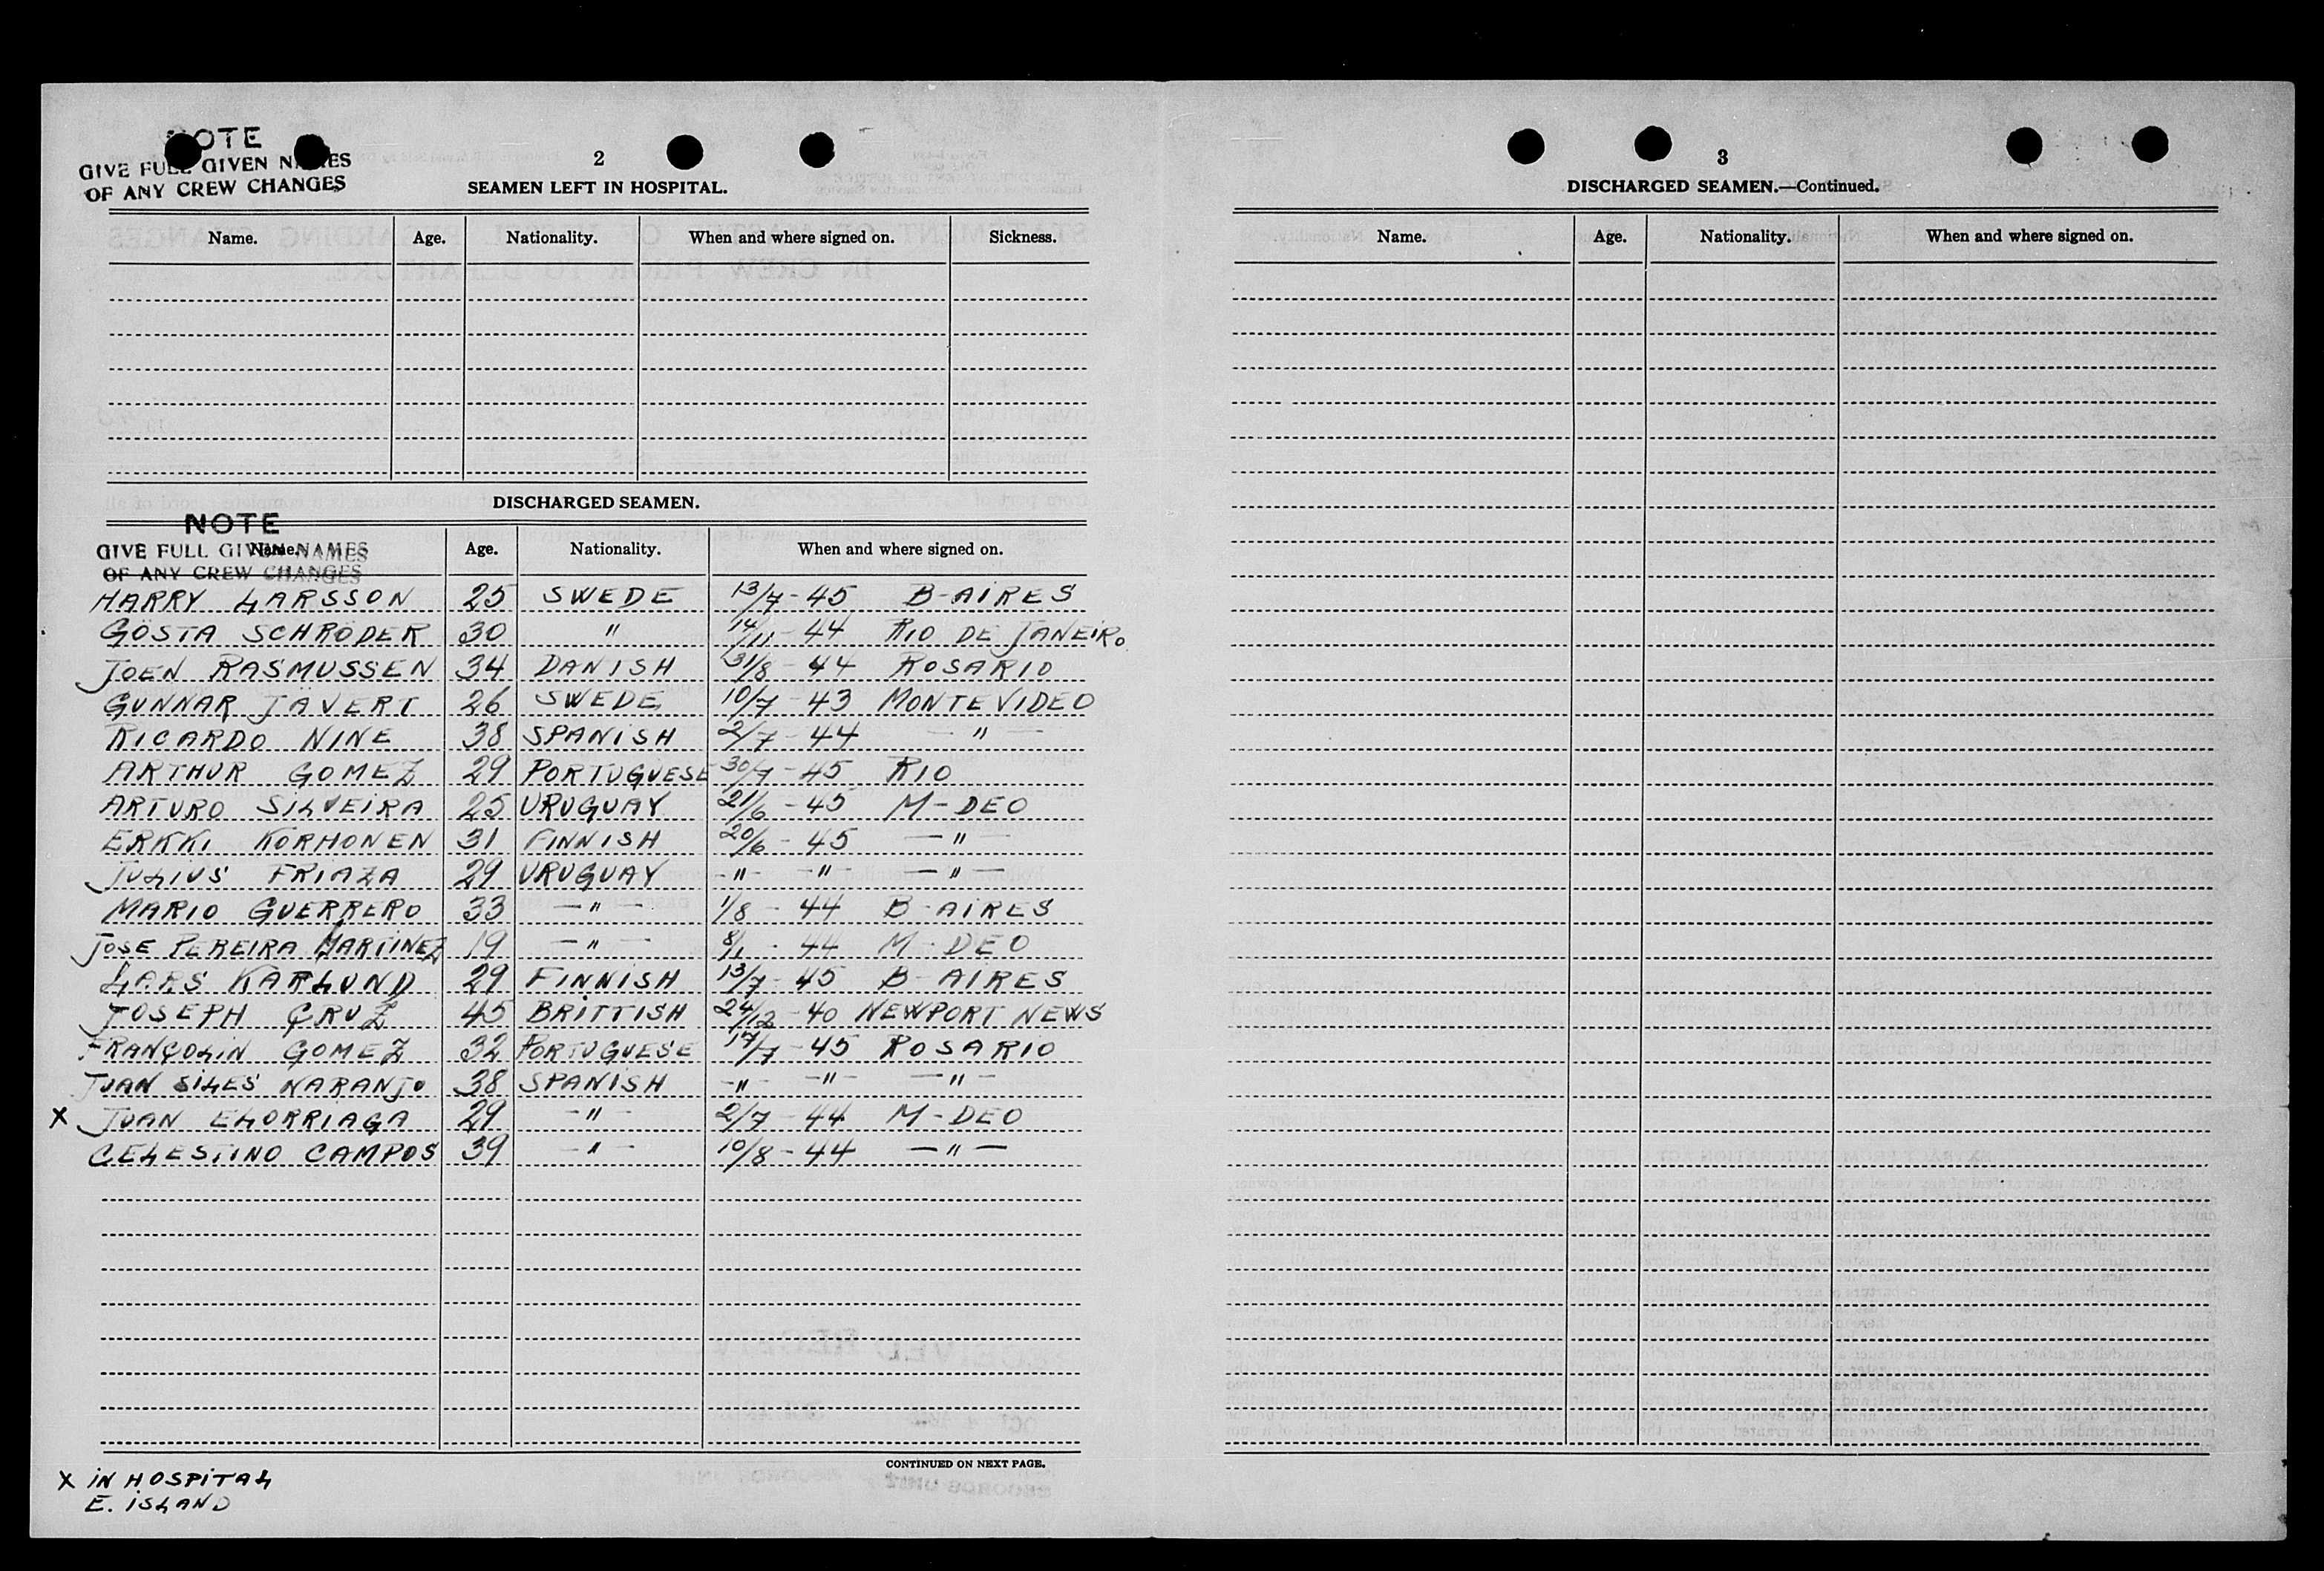 NOTE
GIVE FULL GIVEN NAMES
OF ANY CREW CHANGES
2
SEAMEN LEFT IN HOSPITAL.
Name. Age. Nationality. When and where signed on. Sickness.
DISCHARGED SEAMEN.
NOTE
GIVE FULL GIVEN NAMES
OF ANY CREW CHANGES
Name. Age. Nationality. When and where signed on.
HARRY LARSSON 25 SWEDE 13/7-45 B-AIRES
GÖSTA SCHRÖDER 30 " 14/11-44 RIO DE JANEIRO
JOEN RASMUSSEN 34 DANISH 31/8-44 ROSARIO
GUNNAR JÄVERT 26 SWEDE 10/7-43 MONTEVIDEO
RICARDO NINE 38 SPANISH 2/7-44 — " —
ARTHUR GOMEZ 29 PORTUGUESE 30/7-45 RIO
ARTURO SILVEIRA 25 URUGUAY 21/6-45 M-DEO
ERKKI KORHONEN 31 FINNISH 20/6-45 — " —
JULIUS FRIAZA 29 URUGUAY -"- -"- — " —
MARIO GUERRERO 33 — " — 1/8-44 B-AIRES
JOSE PEREIRA MARTINEZ 19 — " — 8/1-44 M-DEO
LARS KARLUND 29 FINNISH 13/7-45 B-AIRES
JOSEPH CRUZ 45 BRITTISH 24/12-40 NEWPORT NEWS
FRANÇOLIN GOMEZ 32 PORTUGUESE 17/7-45 ROSARIO
JUAN SILES NARANJO 38 SPANISH -"- -"- — " —
X JUAN ELORRIAGA 29 -"- 2/7-44 M-DEO
CELESTINO CAMPOS 39 -"- 10/8-44 — " —
CONTINUED ON NEXT PAGE.
X IN HOSPITAL
E. ISLAND
3
DISCHARGED SEAMEN.—Continued.
Name. Age. Nationality. When and where signed on.